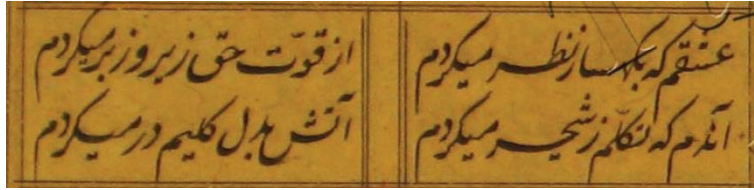 عشقم که بکهسار نظر میکردم
از قوّت حق زیر و زبر میکردم
آندم که تکلّم ز شجر میکردم
آتش بدل کلیم در میکردم